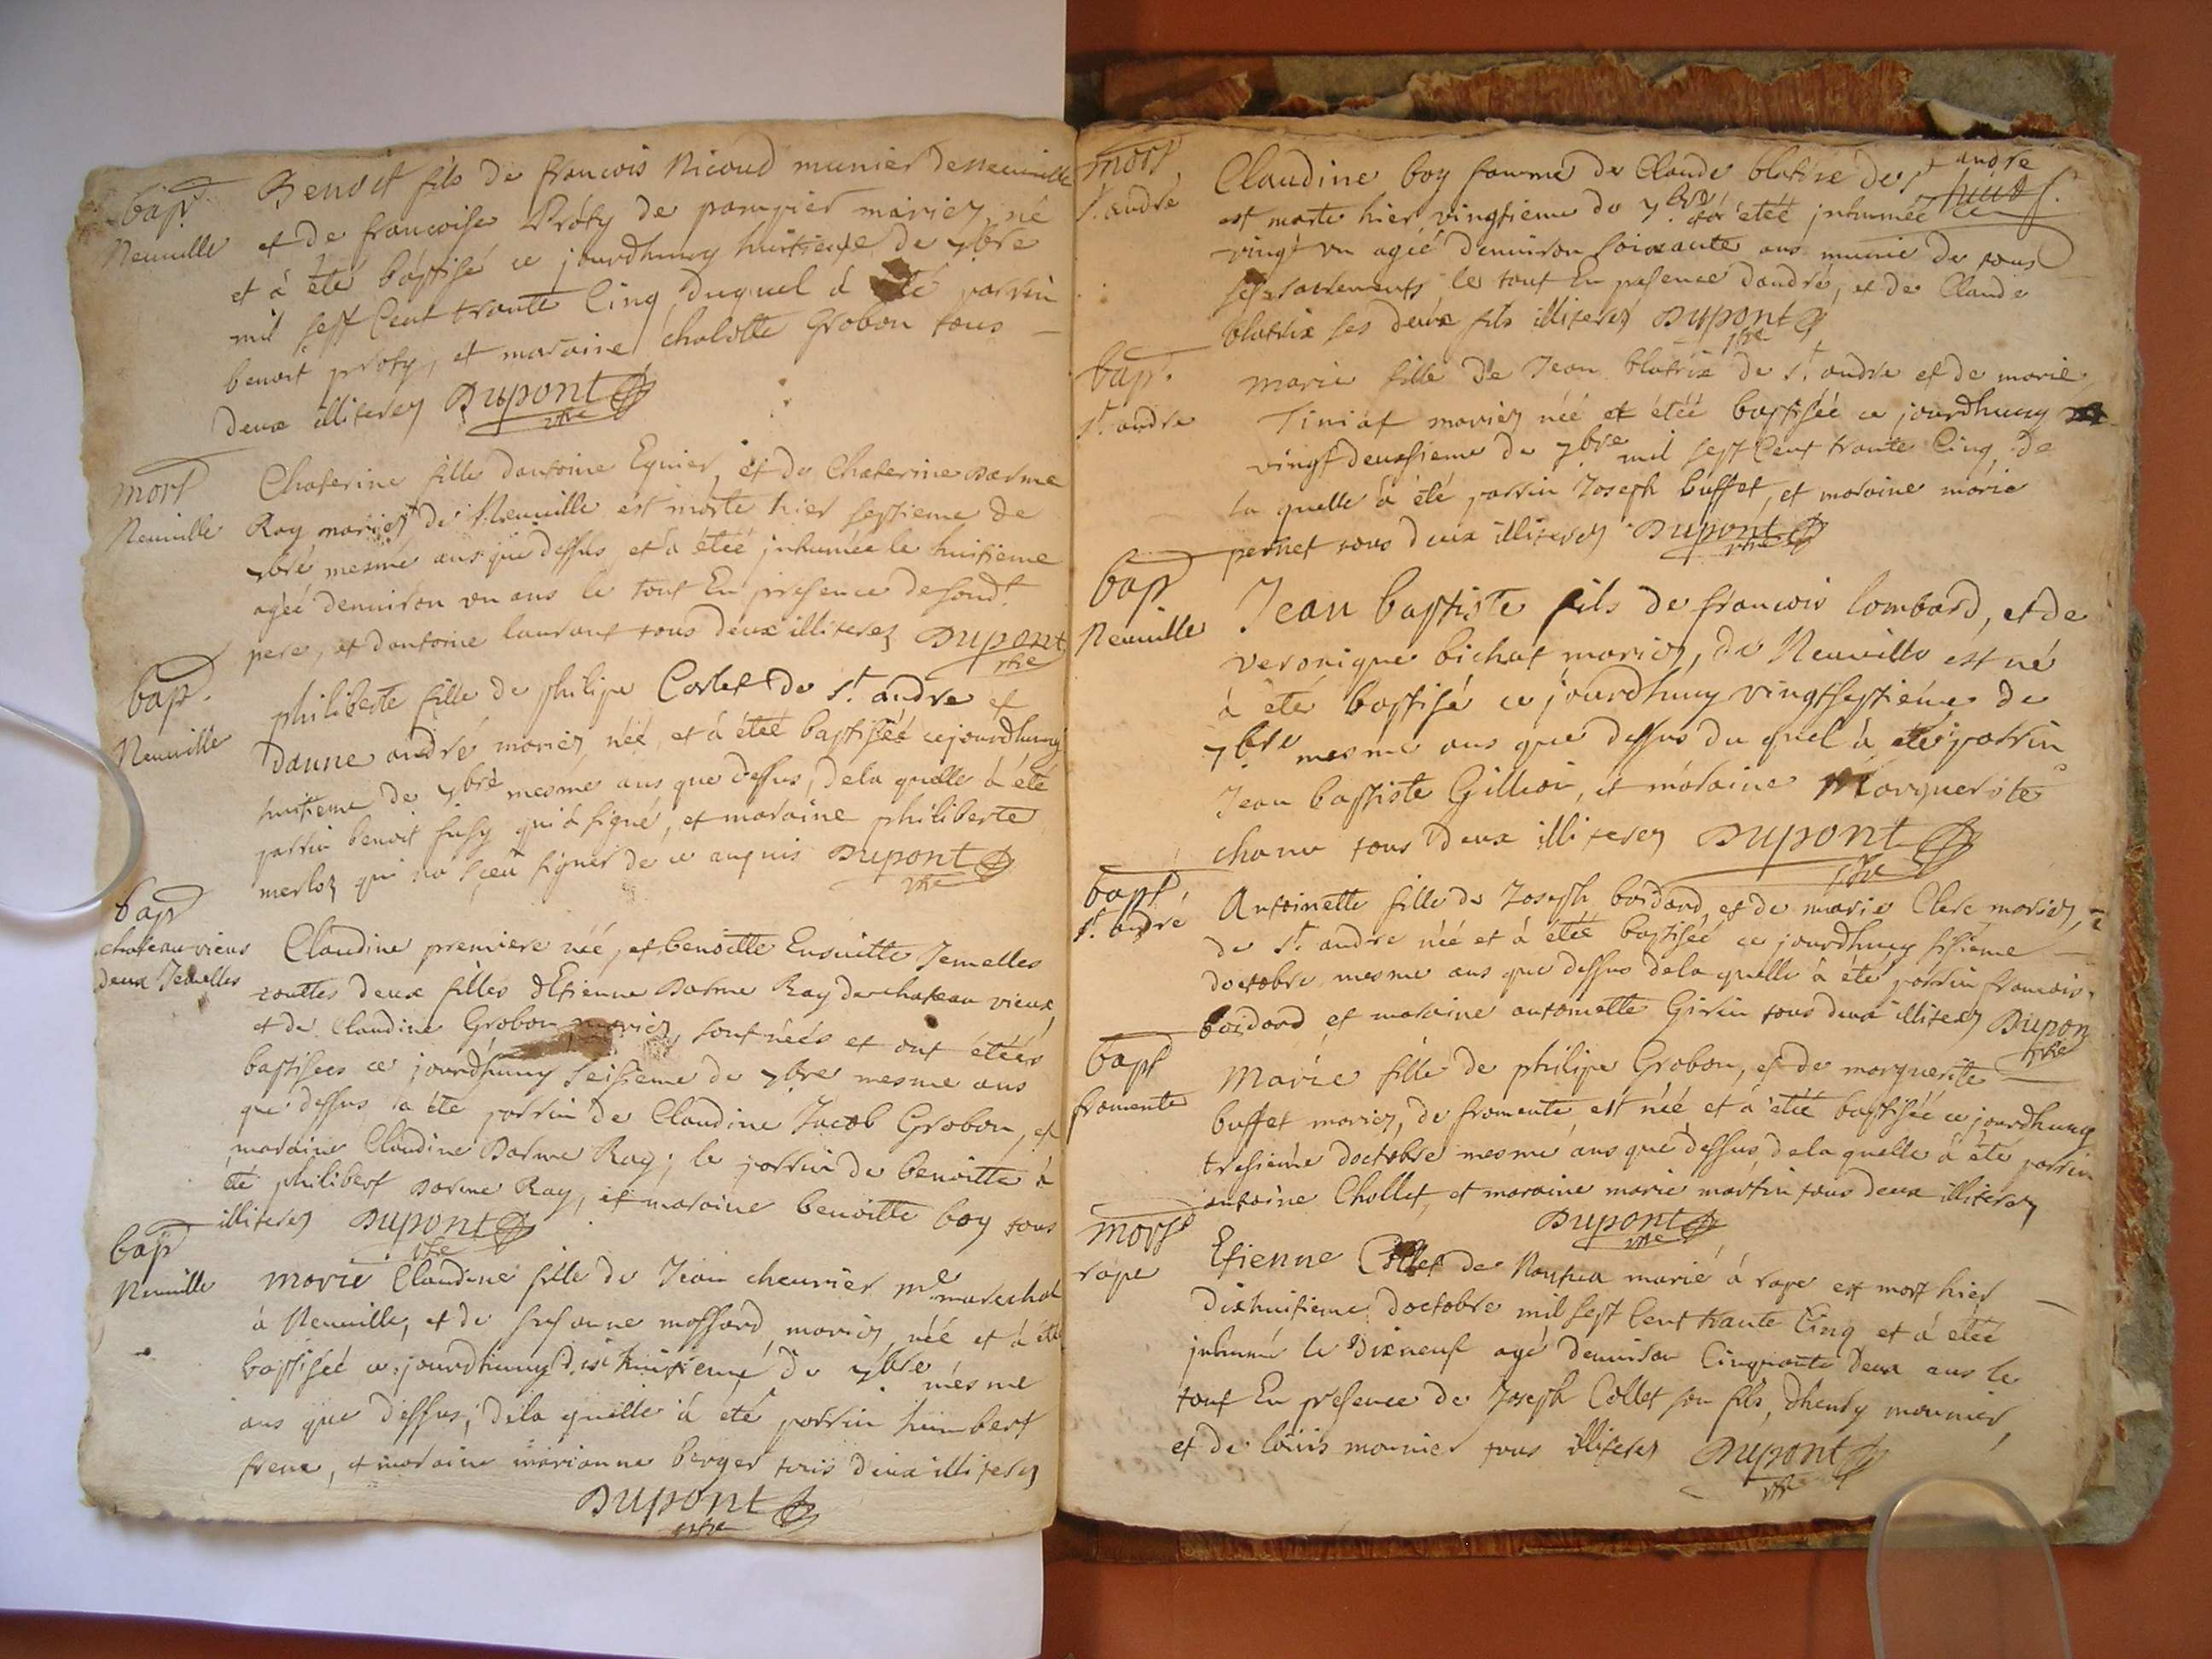 bapt
Neuville
Benoit fils de francois Nicoud munier de neuville
et de francoise Proty de pampier mariez, né
et à été baptisé ce jourdhuny huitieme de 7bre
mil sept Cent trante Cinq duquel à été parrin
benoit proty, et maraine chalotte Grobon tous
deux illiterez Dupont
ptre
mort
Neuville
Chaterine fille dantoine Eynier, et de Chaterine darme
Ray mariez de Neuville est morte hier septieme de
7bre mesme ans que dessus et à étéé inhumée le huitieme
agéé denviron un ans le tout En presence de sond.t
pere, et dantoine laurant tous deux illiterez Dupont
ptre
bapt.
Neuville
philiberte fille de philipe Carlet de s.t andre et
danne andré mariez néé, et à étéé baptiséé ce jourdhuny
huitieme de 7bre mesme ans que dessus, de la quelle à été
parrin benoit fusy qui à signé, et maraine philiberte
merloz qui na sçeu signer de ce enquis Dupont
ptre
bapt
chateauvieux
deux Jemelles
Claudine premiere néé, et benoitte Ensuitte Jemelles
touttes deux filles dEtienne Darme Ray de chateau vieux,
et de Claudine Grobon mariez, sont néés et ont étéés
baptisees ce jourdhuny seisieme de 7bre mesme ans
que dessus, à été parrin de Claudine Jacob Grobon, et
maraine Claudine Darme Ray; le parrin de benoitte à
été philibert Darme Ray, et maraine benoitte boy tous
illiterez Dupont
ptre
bapt
Neuville
Marie Claudine fille de Jean cheurier m.e marechal
à Neuville, et de susanne mossard mariez néé et à été
baptiséé ce jourdhuny dixhuitieme de 7bre mésme
ans que dessus, dela quelle à eté parrin humbert
frene, et maraine marianne berger tous deux illiterez
Dupont
ptre
mort
s.t andré
Claudine boy famme de Claude blatrix de s.t andre
est morte hier vingtieme de 7bre et à étéé inhumée ce
vingt un agéé denviron soixante ans munie de tous
ses sacrements le tout En presence dandré, et de Claude
blatrix ses deux fils illiterez Dupont
ptre
bapt.
s.t andre
marie fille de Jean blatrix de s.t andre et de marie
Tiniat mariez néé et étéé baptiséé ce jourdhuny
vingt deuxsieme de 7bre mil sept Cent trante Cinq, de
la quelle à été parrin Joseph buffet, et maraine marie
pernet tous deux illiterez Dupont
ptre
bapt
Neuville
Jean baptiste fils de francois lombard, et de
veronique bichat mariez, de Neuville est né
à été baptisé ce jourdhuny vingtseptiéme de
7bre mesme ans que dessus du quel à été parrin
Jean baptiste Gillion, et maraine Marguerite
chanu tous deux illiterez Dupont
ptre
bapt.
s.t andré
Antoinette fille de Joseph boidard, et de marie Clere mariez,
de s.t andre néé et à étéé baptiséé ce jourdhuny sisieme
doctobre mesme ans que dessus dela quelle à été parrin francois
boidard et maraine antoinette Girin tous deux illiterez Dupon
ptre
bapt
fromente
Marie fille de philipe Grobon, et de marguerite
buffet mariez, de fromente est néé et à étéé baptiséé ce jourdhuny
tresiéme doctobre mesme ans que dessus, dela quelle à été parrin
antoine Chollet, et maraine marie martin tous deux illiterez
Dupont
ptre
mort
rape
Etienne Collet de marié à rape est mort hier
dixhuitieme doctobre mil sept Cent trante Cinq et à étéé
inhumé le dixneuf agé denviron Cinquante deux ans le
tout En presence de Joseph Collet son fils, dhenry mounier,
et de loüis mounier tous illiterez Dupont
ptre